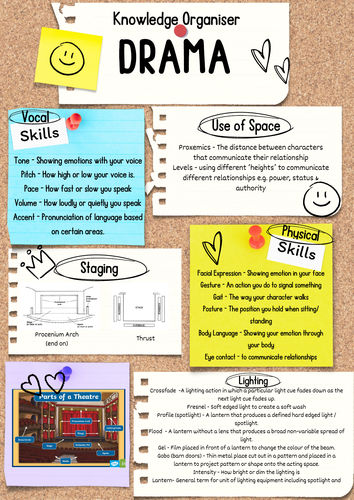 Knowledge Organiser
DRAMA
Vocal
Skills
Tone - Showing emotions with your voice
Pitch - How high or low your voice is.
Pace - How fast or slow you speak
Volume - How loudly or quietly you speak
Accent - Pronunciation of language based
on certain areas.
Use of Space
Proxemics - The distance between characters
that communicate their relationship
Levels - using different 'heights' to communicate
different relationships e.g. power, status &
authority
Physical
Skills
Facial Expression - Showing emotion in your face
Gesture - An action you do to signal something
Gait - The way your character walks
Posture - The position you hold when sitting/
standing
Body Language - Showing your emotion through
your body
Eye contact - to communicate relationships
Staging
Procenium Arch
(end on)
Thrust
Parts of a Theatre
Lighting
Crossfade -A lighting action in which a particular light cue fades down as the
next light cue fades up.
Fresnel - Soft edged light to create a soft wash
Profile (spotlight) - A lantern that produces a defined hard edged light /
spotlight.
Flood - A lantern without a lens that produces a broad non-variable spread of
light.
Gel - Film placed in front of a lantern to change the colour of the beam.
Gobo (barn doors) - Thin metal place cut out in a pattern and placed in a
lantern to project pattern or shape onto the acting space.
Intensity - How bright or dim the lighting is
Lantern- General term for unit of lighting equipment including spotlight and